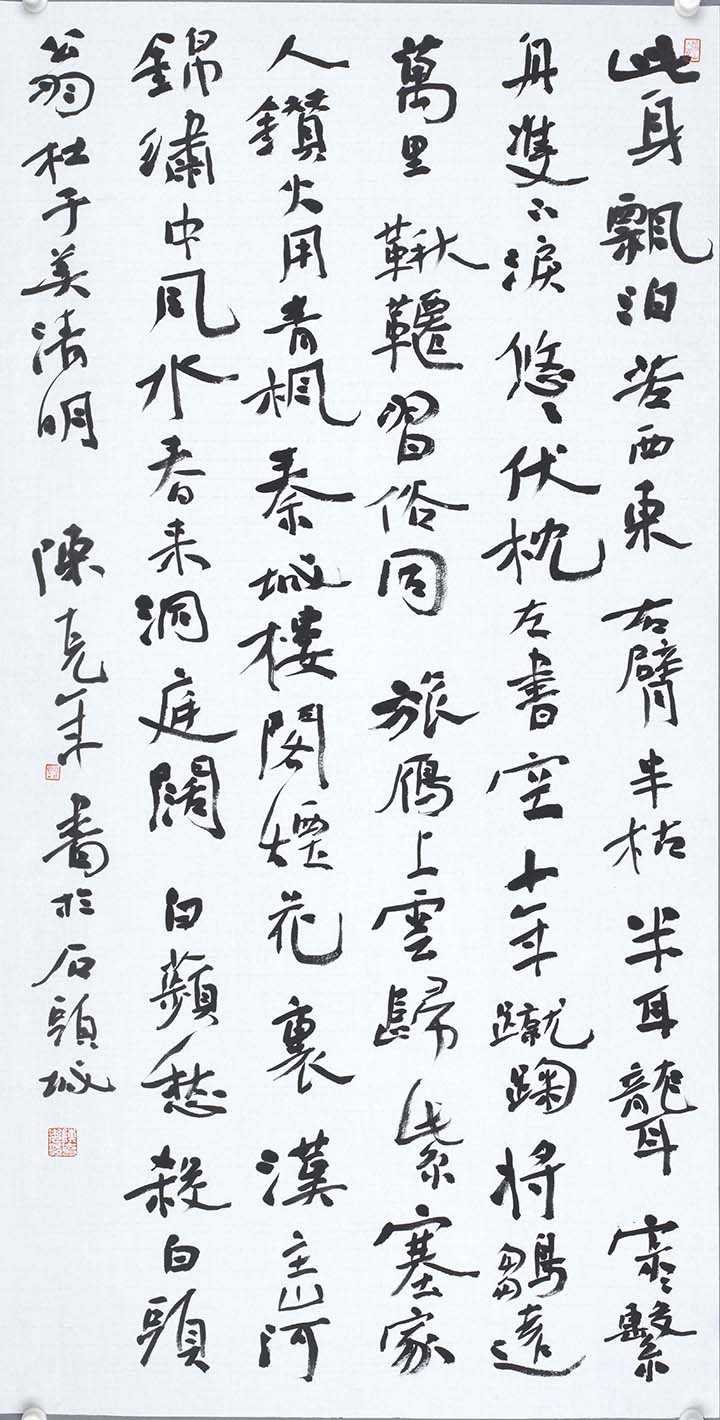 此身飄泊苦西東右臂半枯半耳聾寂〻繫
舟雙下淚悠〻伏枕左書空十年蹴鞠將鶵遠
萬里鞦韆習俗同旅鴈上雲歸紫塞家
人鑽火用青楓秦城樓閣煙花裏漢主山河
錦繡中風水春来洞庭闊白蘋愁殺白頭
翁杜子美清明 陳克年書於石頭城